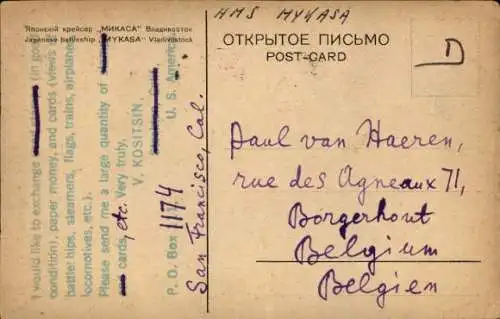 HMS MYKASA
Японскій крейсер „МИКАСА" Владивосток
Japanese battleship „MYKASA" Vladivostock
ОТКРЫТОЕ ПИСЬМО
POST-CARD
D
I would like to exchange (in good
condition), paper money, and cards (views
battleships, steamers, flags, trains, airplanes
locomotives, etc.).
Please send me a large quantity of
cards, etc. Very truly,
V. KOSITSIN,
P. O. Box 1174 U. S. America
San Francisco, Cal.
Paul van Haeren,
rue des Agneaux 71,
Borgerhout
Belgium
Belgien